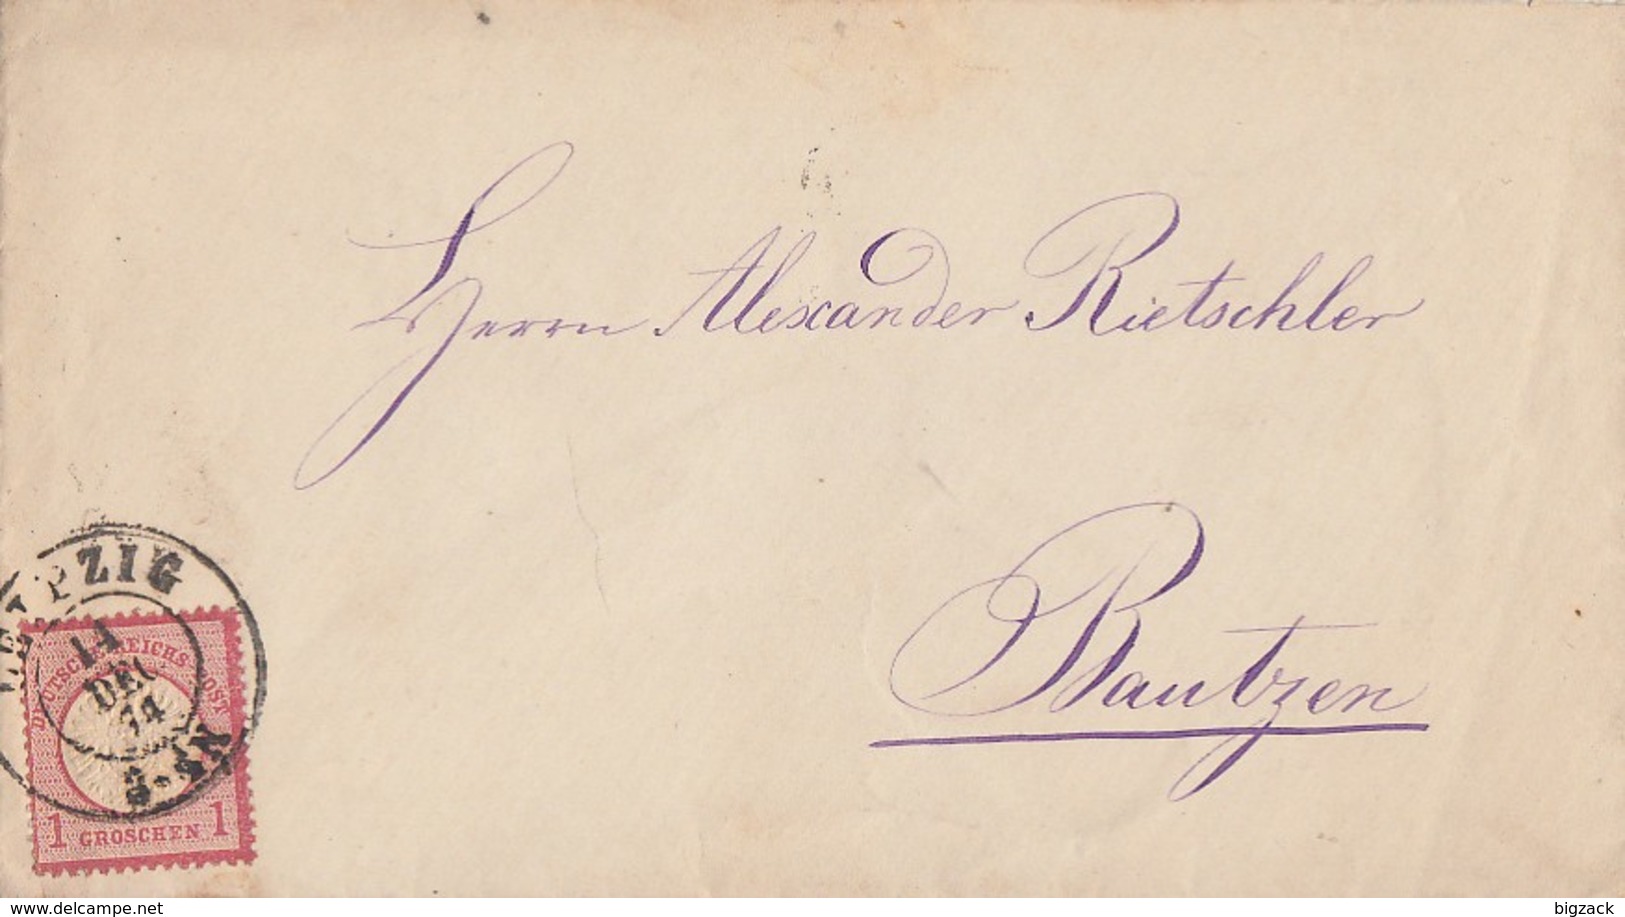 Herrn Alexander Rietschler
Bautzen
LEIPZIG
14
DEC
74
5-6 N
DEUTSCHE REICHS-POST
1 GROSCHEN 1
www.delcampe.net
bigzack